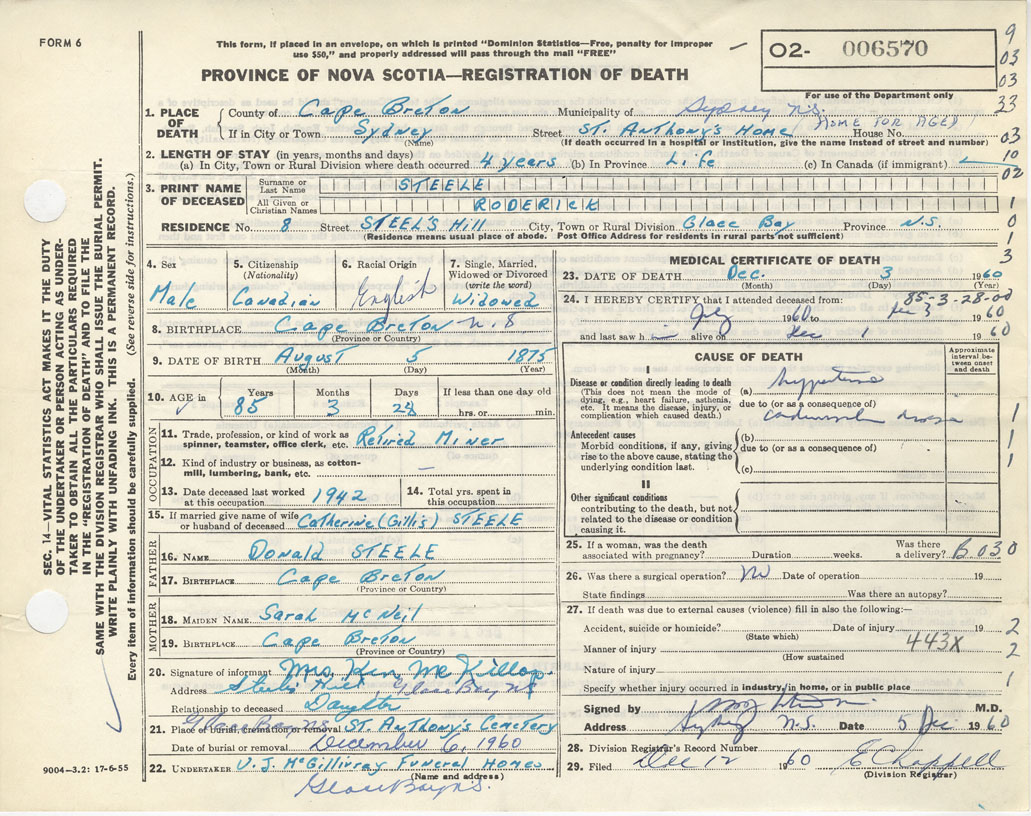 FORM 6
This form, if placed in an envelope, on which is printed "Dominion Statistics—Free, penalty for improper
use $50," and properly addressed will pass through the mail "FREE"
PROVINCE OF NOVA SCOTIA—REGISTRATION OF DEATH
O2- 006570
For use of the Department only
9
03
03
33
03
10
02
1
0
1
3
SEC. 14—VITAL STATISTICS ACT MAKES IT THE DUTY
OF THE UNDERTAKER OR PERSON ACTING AS UNDER-
TAKER TO OBTAIN ALL THE PARTICULARS REQUIRED
IN THE "REGISTRATION OF DEATH" AND TO FILE THE
SAME WITH THE DIVISION REGISTRAR WHO SHALL ISSUE THE BURIAL PERMIT.
WRITE PLAINLY WITH UNFADING INK. THIS IS A PERMANENT RECORD.
Every item of information should be carefully supplied. (See reverse side for instructions.)
1. PLACE OF DEATH
County of Cape Breton Municipality of Sydney N.S.
(HOME FOR AGED)
If in City or Town Sydney Street ST. Anthony's Home House No.
(Name) (If death occurred in a hospital or institution, give the name instead of street and number)
2. LENGTH OF STAY (in years, months and days)
(a) In City, Town or Rural Division where death occurred 4 years (b) In Province Life (c) In Canada (if immigrant)
3. PRINT NAME OF DECEASED
Surname or Last Name STEELE
All Given or Christian Names RODERICK
RESIDENCE No. 8 Street STEEL'S Hill City, Town or Rural Division Glace Bay Province N.S.
(Residence means usual place of abode. Post Office Address for residents in rural parts not sufficient)
4. Sex
Male
5. Citizenship
(Nationality)
Canadian
6. Racial Origin
English
7. Single, Married,
Widowed or Divorced
(write the word)
Widowed
8. BIRTHPLACE Cape Breton N.S
(Province or Country)
9. DATE OF BIRTH August 5 1875
(Month) (Day) (Year)
10. AGE in Years Months Days If less than one day old
85 3 28 hrs. or min.
OCCUPATION
11. Trade, profession, or kind of work as
spinner, teamster, office clerk, etc. Retired Miner
12. Kind of industry or business, as cotton-
mill, lumbering, bank, etc. —
13. Date deceased last worked
at this occupation 1942
14. Total yrs. spent in
this occupation
15. If married give name of wife
or husband of deceased Catherine (Gillis) STEELE
FATHER
16. NAME Donald STEELE
17. BIRTHPLACE Cape Breton
(Province or Country)
MOTHER
18. MAIDEN NAME Sarah McNeil
19. BIRTHPLACE Cape Breton
(Province or Country)
20. Signature of informant Mrs. Ken McKillop.
Address Steels Hill Glace Bay NS
Relationship to deceased Daughter
Glace Bay NS
21. Place of burial, cremation or removal ST. Anthony's Cemetery
Date of burial or removal December 6, 1960
22. UNDERTAKER V. J. McGillivray Funeral Homes
(Name and address)
Glace Bay N.S.
9004-3.2: 17-6-55
MEDICAL CERTIFICATE OF DEATH
23. DATE OF DEATH Dec. 3 1960
(Month) (Day) (Year)
85-3-28-00
24. I HEREBY CERTIFY that I attended deceased from:
1960 to Dec 3 1960
and last saw h alive on Dec 1 1960
CAUSE OF DEATH
Approximate interval between onset and death
I
Disease or condition directly leading to death
(This does not mean the mode of
dying, e.g., heart failure, asthenia,
etc. It means the disease, injury, or
complication which caused death.)
(a)
due to (or as consequence of)
1
Antecedent causes
Morbid conditions, if any, giving
rise to the above cause, stating the
underlying condition last.
(b)
due to (or as a consequence of)
(c)
1
1
II
Other significant conditions
contributing to the death, but not
related to the disease or condition
causing it.
25. If a woman, was the death
associated with pregnancy? Duration weeks. Was there
a delivery? B.030
26. Was there a surgical operation? No Date of operation 19
State findings Was there an autopsy?
27. If death was due to external causes (violence) fill in also the following:—
Accident, suicide or homicide? Date of injury 19 2
(State which)
Manner of injury 443X 2
(How sustained)
Nature of injury
Specify whether injury occurred in industry, in home, or in public place 1
Signed by M.D.
Address Sydney N.S. Date 5 Dec 1960
28. Division Registrar's Record Number
29. Filed Dec 12 1960 E Chappell
(Division Registrar)